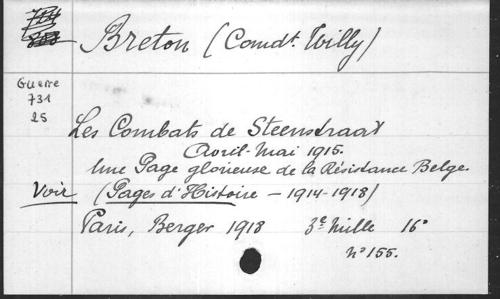 Breton (Comdt. Willy)
Guerre
731
25
Les Combats de Steenstraat
Avril-Mai 1915.
Une Page glorieuse de la Résistance Belge.
Voir (Pages d'Histoire - 1914-1918)
Paris, Berger 1918 3e Mille 16°
N° 155.